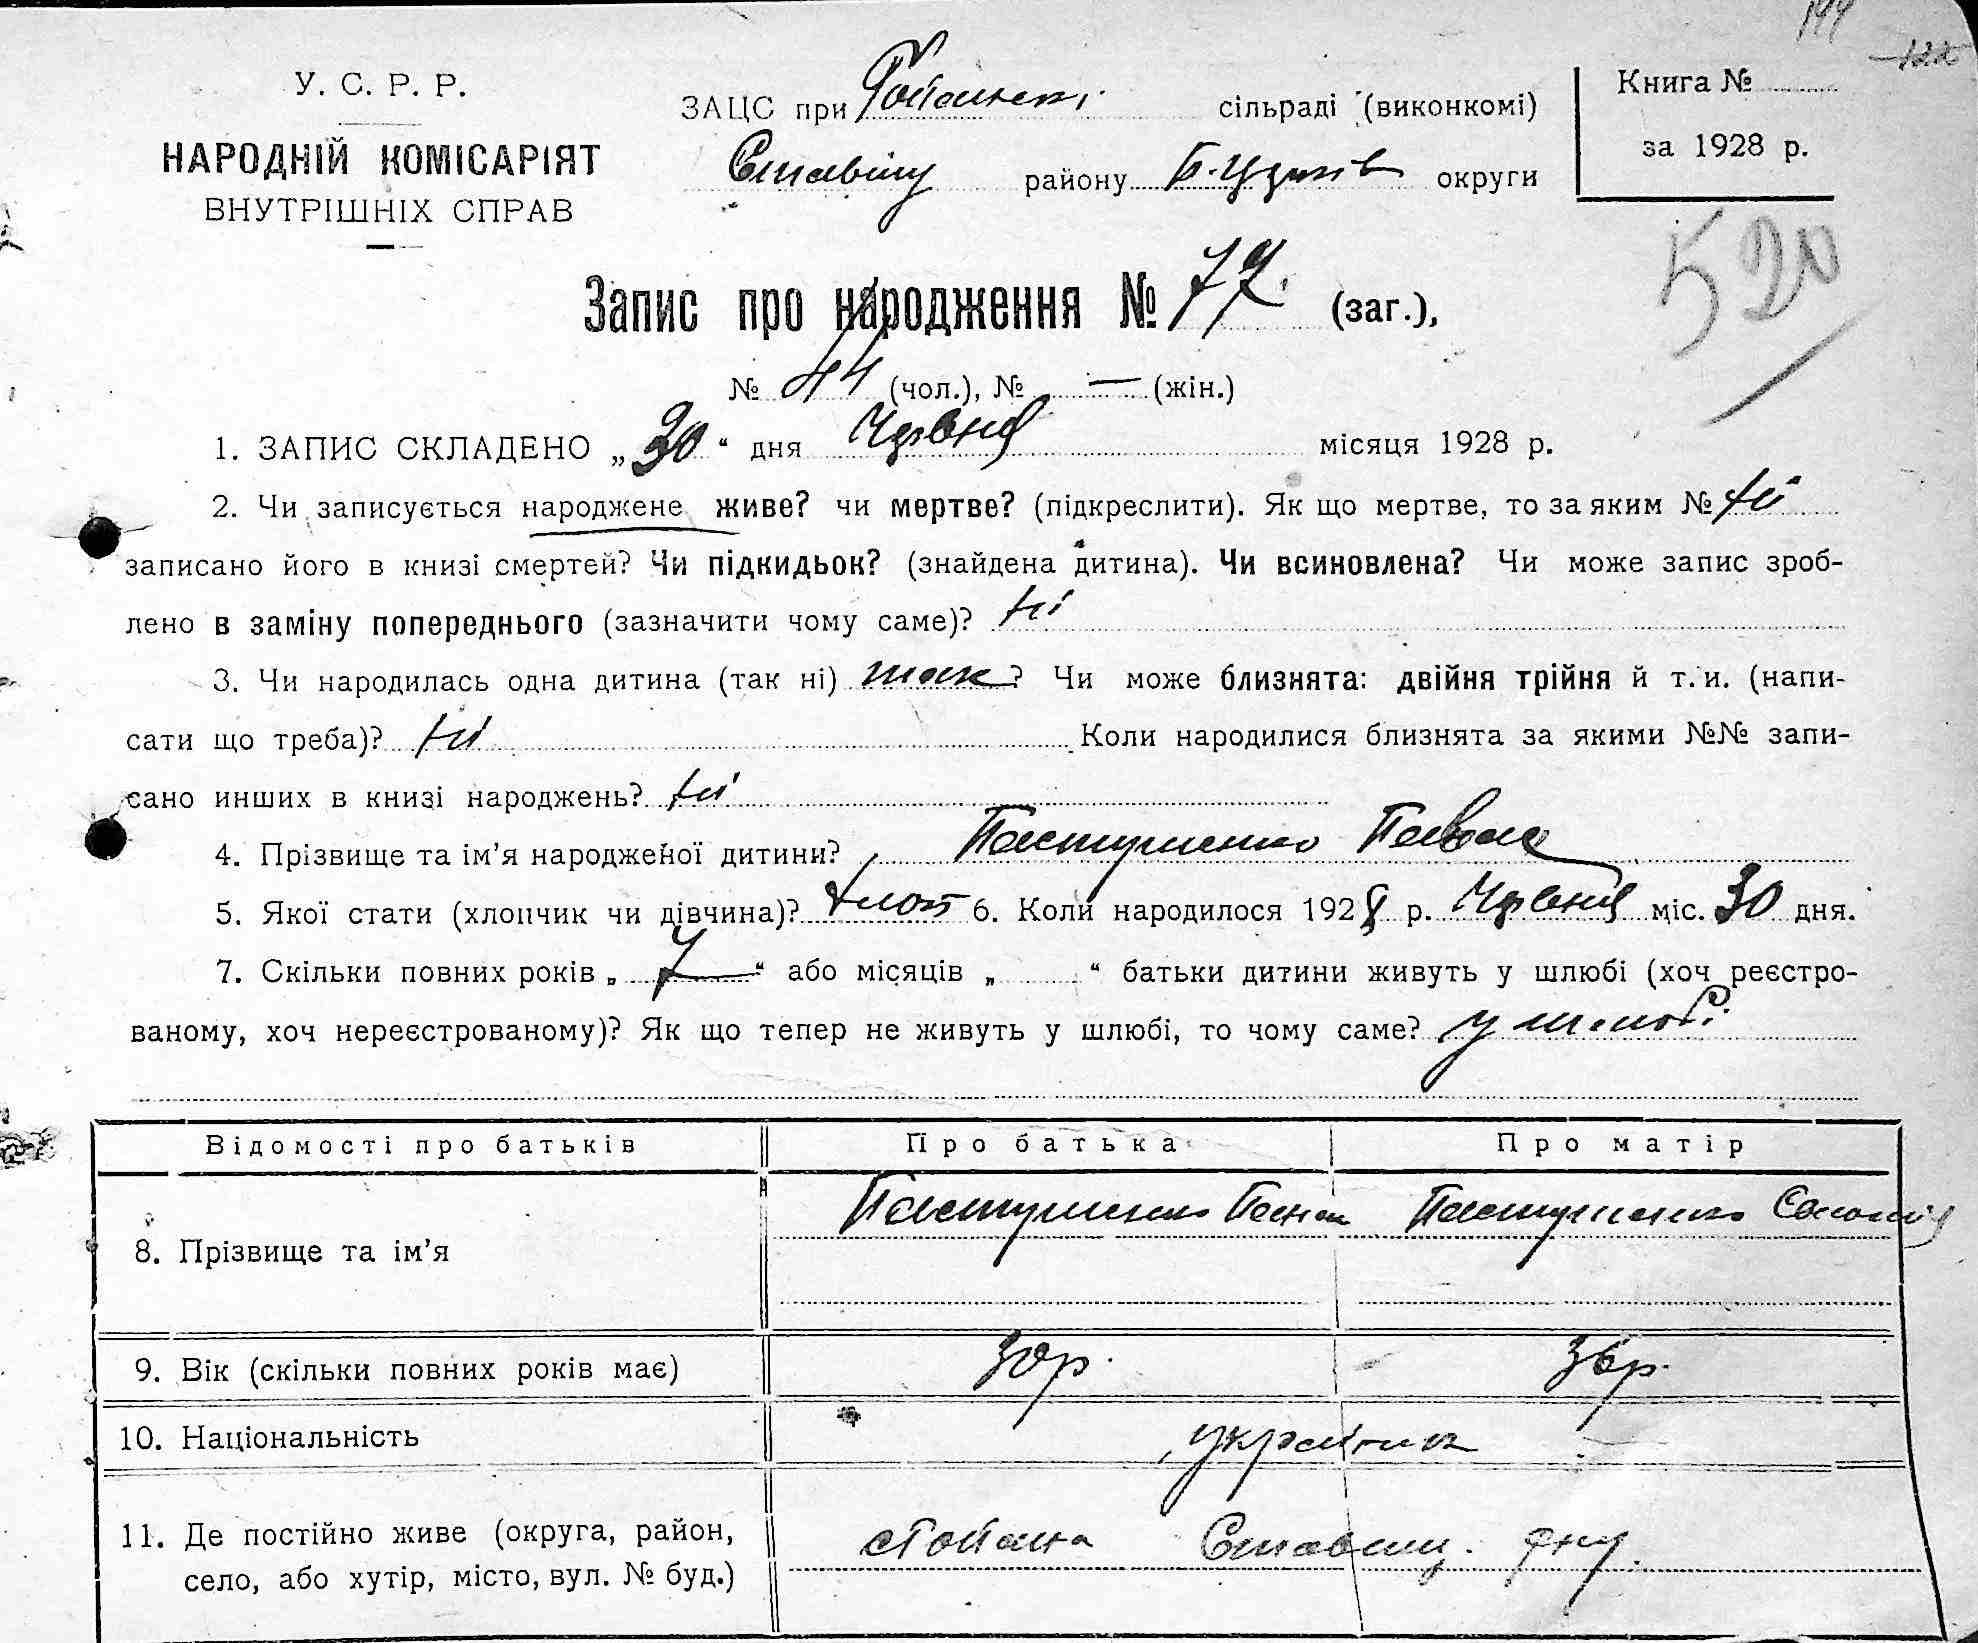 144
122
У. С. Р. Р.
НАРОДНІЙ КОМІСАРІЯТ
ВНУТРІШНІХ СПРАВ
ЗАЦС при сільраді (виконкомі)
Ставищ району Б-Церків округи
Книга №
за 1928 р.
520
Запис про народження № 77 (заг.),
№ 44 (чол.), № — (жін.)
1. ЗАПИС СКЛАДЕНО „30“ дня Червня місяця 1928 р.
2. Чи записується народжене живе? чи мертве? (підкреслити). Як що мертве, то за яким № ні
записано його в книзі смертей? Чи підкидьок? (знайдена дитина). Чи всиновлена? Чи може запис зроб-
лено в заміну попереднього (зазначити чому саме)? ні
3. Чи народилась одна дитина (так ні) так? Чи може близнята: двійня трійня й т. и. (напи-
сати що треба)? ні Коли народилися близнята за якими №№ запи-
сано инших в книзі народжень? ні
4. Прізвище та ім’я народженої дитини? Пастушенко Павло
5. Якої стати (хлопчик чи дівчина)? хлоп 6. Коли народилося 1928 р. Червня міс. 30 дня.
7. Скільки повних років „ 7 “ або місяців „ “ батьки дитини живуть у шлюбі (хоч реєстро-
ваному, хоч нереєстрованому)? Як що тепер не живуть у шлюбі, то чому саме? у шлюбі
Відомості про батьків Про батька Про матір
8. Прізвище та ім’я Пастушенко Пастушенко Соломія
9. Вік (скільки повних років має) 30р. 36р.
10. Національність українці
11. Де постійно живе (округа, район, Ставищ. р-ну.
село, або хутір, місто, вул. № буд.)